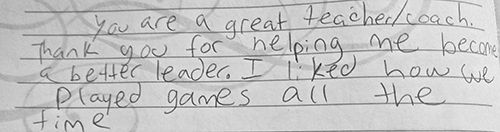 you are a great teacher/coach.
Thank you for helping me become
a better leader. I liked how we
played games all the
time